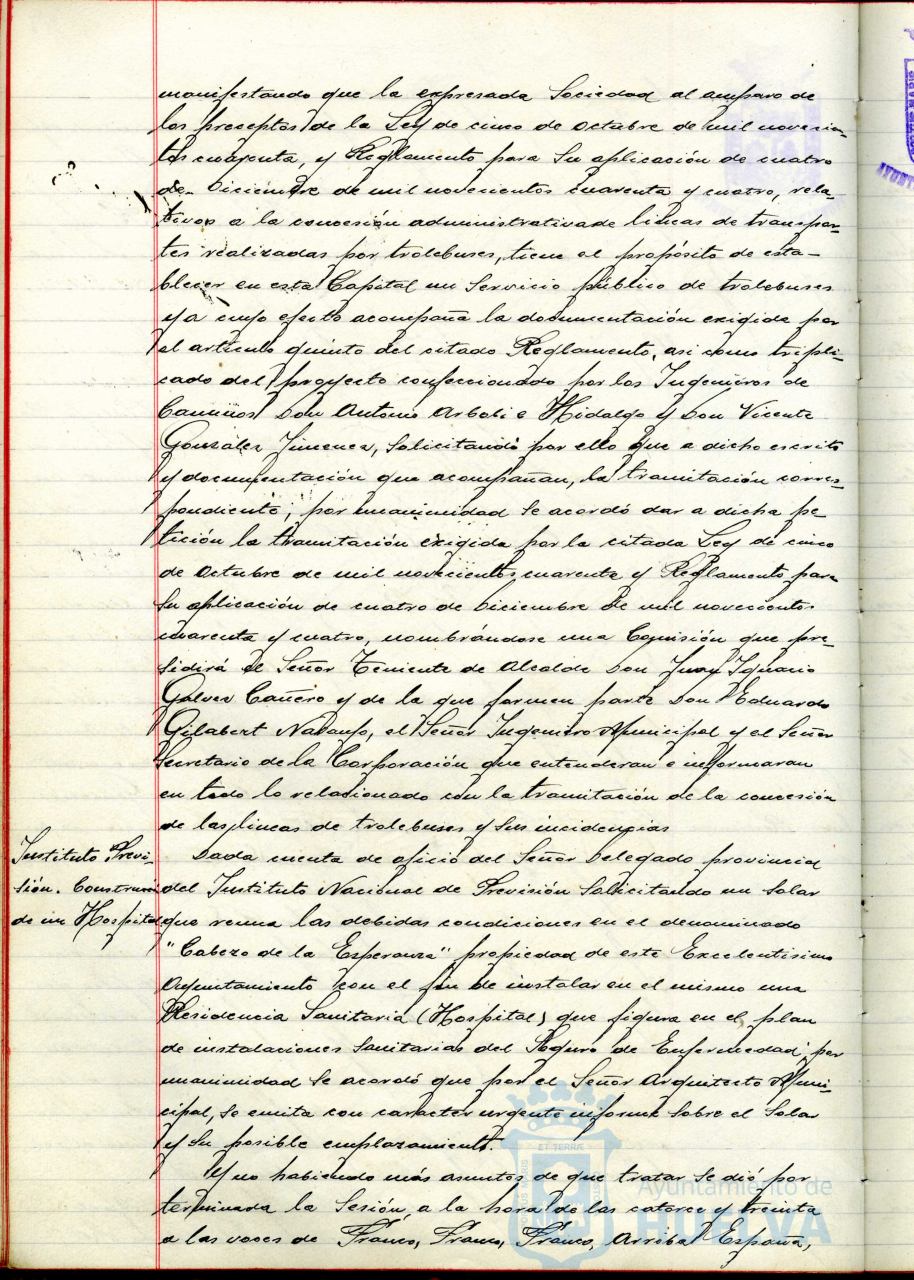 manifestando que la expresada Sociedad al amparo de
los preceptos de la Ley de cinco de octubre de mil novecien-
tos cuarenta, y Reglamento para su aplicación de cuatro
de Diciembre de mil novecientos cuarenta y cuatro, rela-
tivos a la concesión administrativa de lineas de transpor-
tes realizadas por trolebuses, tiene el propósito de esta-
blecer en esta Capital un Servicio público de trolebuses
y a cuyo efecto acompaña la documentación exigida por
el articulo quinto del citado Reglamento, asi como tripli-
cado del proyecto confeccionado por los Ingenieros de
Caminos Don Antonio Arboli e Hidalgo y Don Vicente
Gonzalez Jimenez, Solicitando por ello que a dicho escrito
y documentación que acompañan, la tramitación corres-
pondiente; por unanimidad se acordó dar a dicha pe-
tición la tramitación exigida por la citada Ley de cinco
de Octubre de mil novecientos cuarenta y Reglamento para
su aplicación de cuatro de Diciembre de mil novecientos
cuarenta y cuatro, nombrándose una Comisión que pre-
sidirá el Señor Teniente de Alcalde Don Juan Ignacio
Galvez Cañero y de la que formen parte Don Eduardo
Gilabert Naranjo, el Señor Ingeniero Municipal y el Señor
Secretario de la Corporación que entenderan e informaran
en todo lo relacionado con la tramitación de la concesión
de las lineas de trolebuses y sus incidencias
Instituto Previ-
sión. Construcción
de un Hospital
Dada cuenta de oficio del Señor Delegado provincial
del Instituto Nacional de Previsión Solicitando un solar
que reuna las debidas condiciones en el denominado
"Cabezo de la Esperanza" propiedad de este Excelentisimo
Ayuntamiento con el fin de instalar en el mismo una
Residencia Sanitaria (Hospital) que figura en el plan
de instalaciones Sanitarias del Seguro de Enfermedad; por
unanimidad se acordó que por el Señor Arquitecto Muni-
cipal, se emita con caracter urgente informe sobre el Solar
y su posible emplazamiento.
Y no habiendo más asuntos de que tratar se dió por
terminada la Sesión, a la hora de las catorce y treinta
a las voces de Franco, Franco, Franco, Arriba España,
ET TERRÆ
Ayuntamiento de
HUELVA